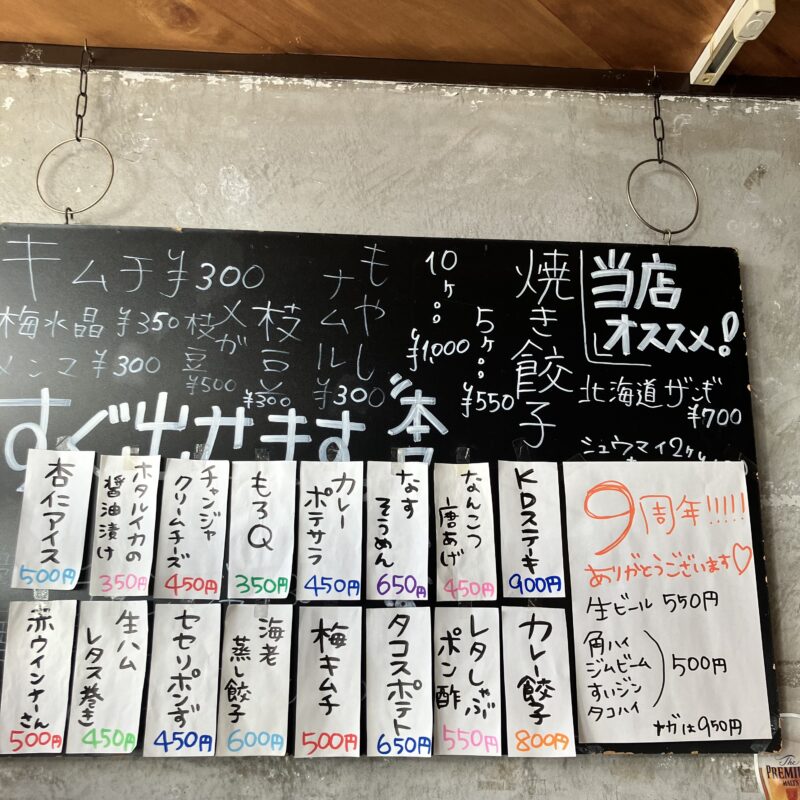 当店
オススメ!
北海道ザンギ
¥700
シュウマイ2ヶ
焼き餃子
5ヶ
¥550
10ヶ
¥1,000
もやし
ナムル
¥300
枝豆
¥300
メガ
枝豆
¥500
キムチ¥300
梅水晶 ¥350
メンマ ¥300
すぐ出せます
KDステーキ
900円
なんこつ
唐あげ
450円
なす
そうめん
650円
カレー
ポテサラ
450円
もろQ
350円
チャンジャ
クリームチーズ
450円
ホタルイカの
醤油漬け
350円
杏仁アイス
500円
カレー餃子
800円
レタしゃぶ
ポン酢
550円
タコスポテト
650円
梅キムチ
500円
海老
蒸し餃子
600円
セセリポンず
450円
生ハム
レタス巻き
450円
赤ウインナーさん
500円
9周年!!!!!
ありがとうございます♡
生ビール 550円
角ハイ
ジムビーム
すいジン
タコハイ
500円
メガは950円
The
PREMIUM
MALT'S